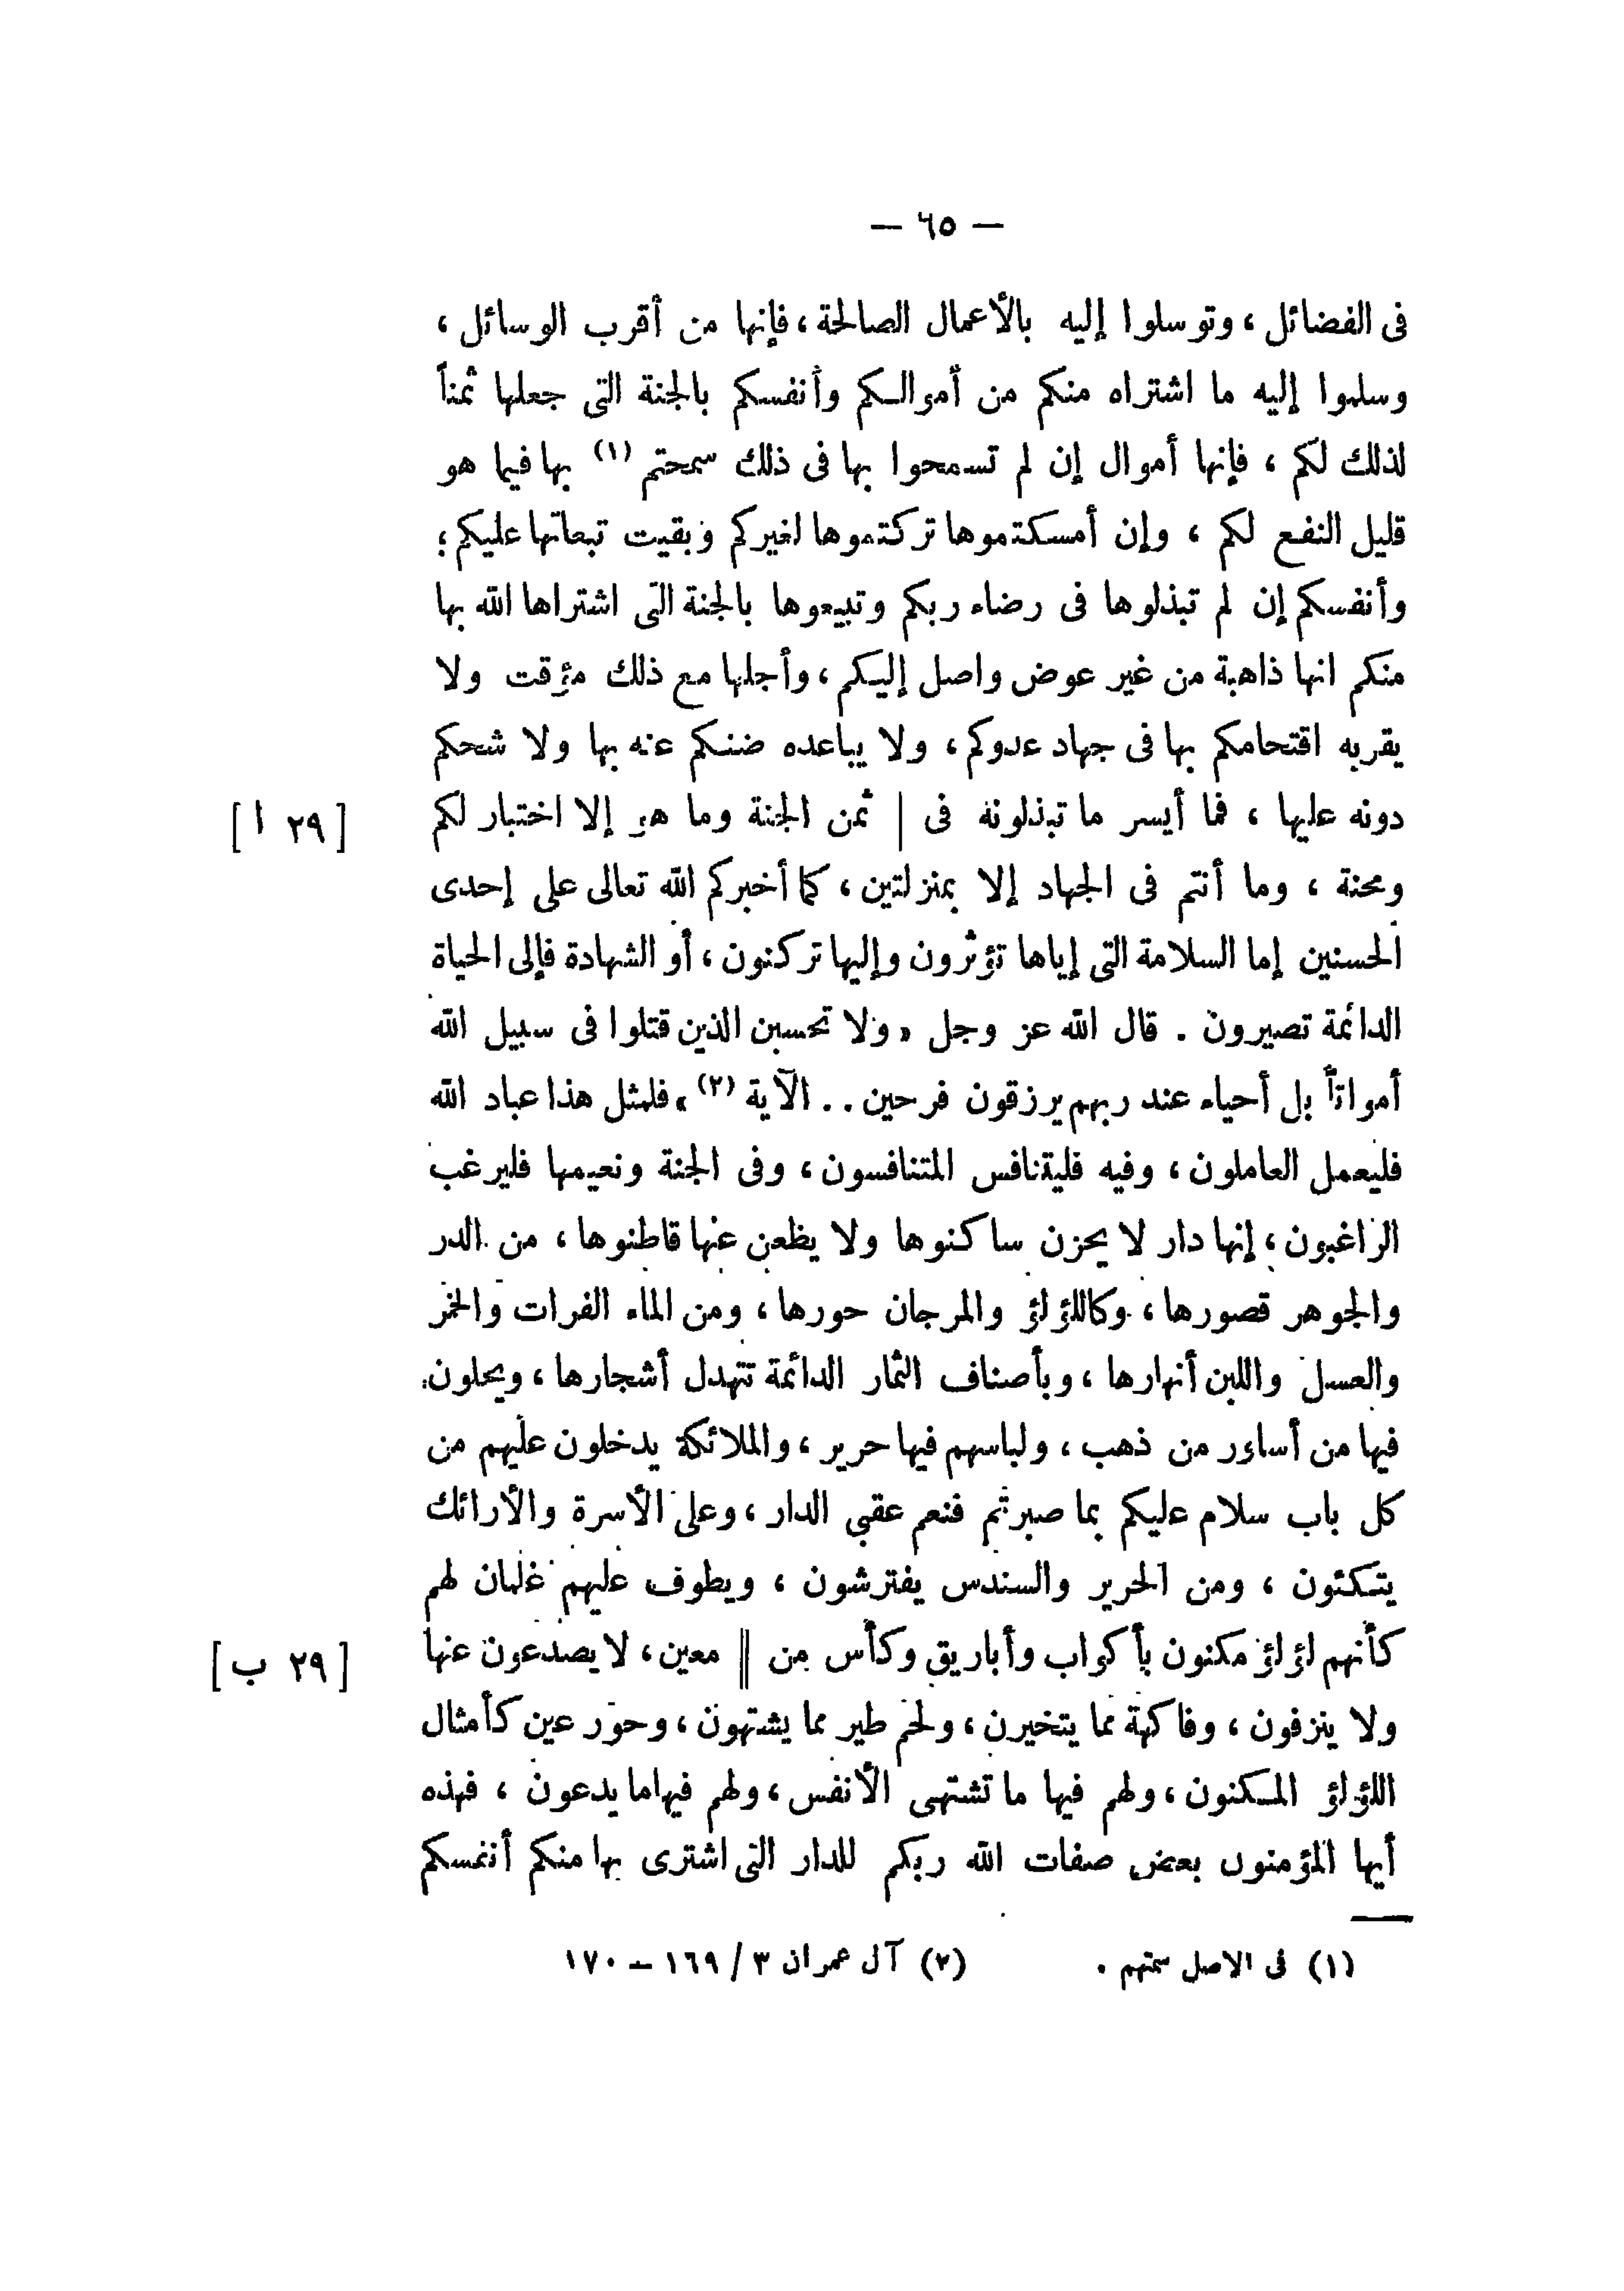 — ٦٥ —
فى الفضائل ، وتوسلوا إليه بالأعمال الصالحة ، فإنها من أقرب الوسائل ،
وسلموا إليه ما اشتراه منكم من أموالكم وأنفسكم بالجنة التى جعلها ثمناً
لذلك لكم ، فإنها أموال إن لم تسمحوا بها فى ذلك سمحتم (١) بها فيما هو
قليل النفع لكم ، وإن أمسكتموها تركتموها لغيركم وبقيت تبعاتها عليكم ؛
وأنفسكم إن لم تبذلوها فى رضاء ربكم وتبيعوها بالجنة التى اشتراها الله بها
منكم انها ذاهبة من غير عوض واصل إليكم ، وأجلها مع ذلك مؤقت ولا
يقربه اقتحامكم بها فى جهاد عدوكم ، ولا يباعده ضنكم عنه بها ولا شحكم
دونه عليها ، فما أيسر ما تبذلونه فى | ثمن الجنة وما هو إلا اختبار لكم [ ٢٩ ا ]
ومحنة ، وما أنتم فى الجهاد إلا بمنزلتين ، كما أخبركم الله تعالى على إحدى
الحسنين إما السلامة التى إياها تؤثرون وإليها تركنون ، أو الشهادة فإلى الحياة
الدائمة تصيرون . قال الله عز وجل « ولا تحسبن الذين قتلوا فى سبيل الله
أمواتاً بل أحياء عند ربهم يرزقون فرحين . . الآية (٢) » فلمثل هذا عباد الله
فليعمل العاملون ، وفيه فليتنافس المتنافسون ، وفى الجنة ونعيمها فليرغب
الراغبون ، إنها دار لا يحزن ساكنوها ولا يظعن عنها قاطنوها ، من الدر
والجوهر قصورها ، وكاللؤلؤ والمرجان حورها ، ومن الماء الفرات والخمر
والعسل واللبن أنهارها ، وبأصناف الثمار الدائمة تتهدل أشجارها ، ويحلون
فيها من أساور من ذهب ، ولباسهم فيها حرير ، والملائكة يدخلون عليهم من
كل باب سلام عليكم بما صبرتم فنعم عقبى الدار ، وعلى الأسرة والأرائك
يتكئون ، ومن الحرير والسندس يفترشون ، ويطوف عليهم غلمان لهم
كأنهم لؤلؤ مكنون بأكواب وأباريق وكأس من || معين ، لا يصدعون عنها [ ٢٩ ب ]
ولا ينزفون ، وفاكهة مما يتخيرن ، ولحم طير مما يشتهون ، وحور عين كأمثال
اللؤلؤ المكنون ، ولهم فيها ما تشتهى الأنفس ، ولهم فيها ما يدعون ، فهذه
أيها المؤمنون بعض صفات الله ربكم للدار التى اشترى بها منكم أنفسكم
(١) فى الاصل سمتهم .
(٢) آل عمران ٣ / ١٦٩ – ١٧٠